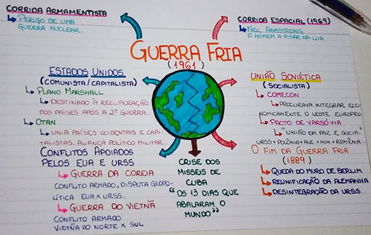 CORRIDA ARMAMENTISTA
PERIGO DE UMA
GUERRA NUCLEAR.
CORRIDA ESPACIAL (1969)
NEIL ARMSTRONG
HOMEM A PISAR NA LUA.
GUERRA FRIA
(1961)
ESTADOS UNIDOS
(COMUNISTA / CAPITALISTA)
PLANO MARSHALL
DESTINADO À RECUPERAÇÃO
DOS PAÍSES APÓS A 2ª GUERRA.
OTAN
UNIA PAÍSES OCIDENTAIS E CAPI-
TALISTAS. ALIANÇA POLÍTICO MILITAR.
CONFLITOS APOIADOS
PELOS EUA E URSS
GUERRA DA COREIA
CONFLITO ARMADO, DISPUTA GEOPO-
LÍTICA EUA X URSS.
GUERRA DO VIETNÃ
CONFLITO ARMADO
VIETNÃ DO NORTE X SUL
CRISE DOS
MÍSSEIS DE
CUBA
"OS 13 DIAS QUE
ABALARAM O
MUNDO"
UNIÃO SOVIÉTICA
(SOCIALISTA)
COMECON
PROCURAVA INTEGRAR ECO-
NOMICAMENTE O LESTE EUROPEU
PACTO DE VARSÓVIA
"UNIÃO DA PAZ E SOCIAL"
URSS + POLÔNIA +
O FIM DA GUERRA FRIA
(1889)
QUEDA DO MURO DE BERLIM
REUNIFICAÇÃO DA ALEMANHA
DESINTEGRAÇÃO DA URSS.